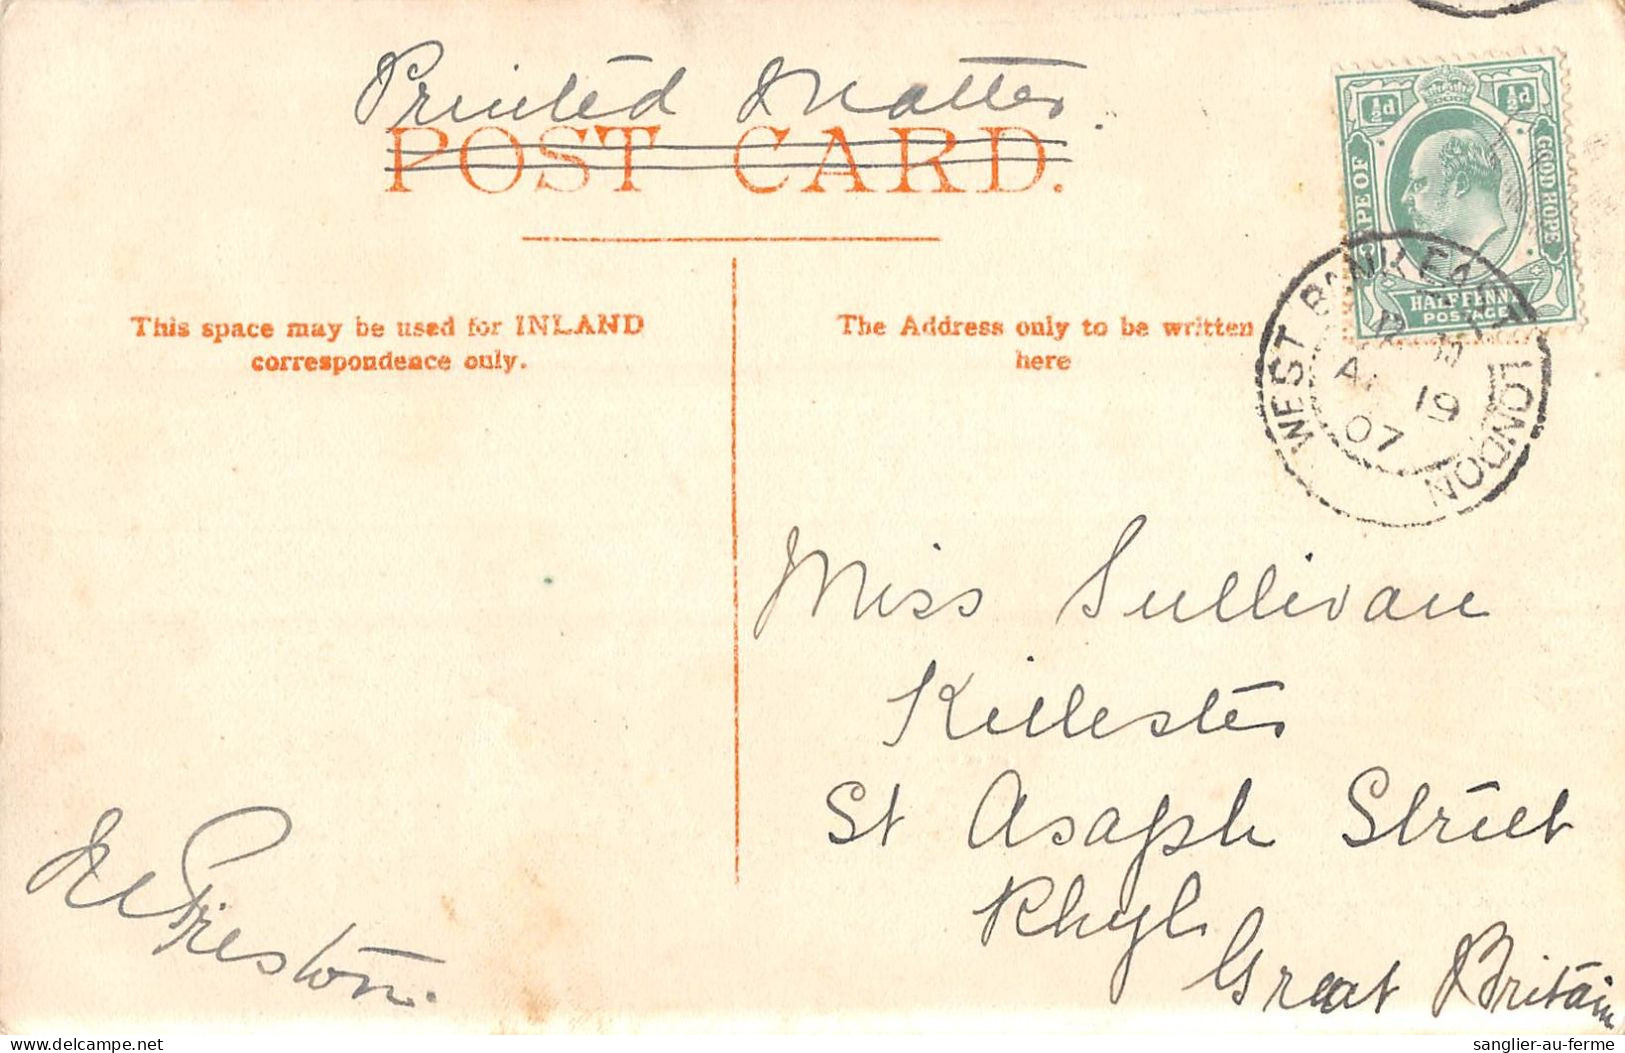 Printed Matter.
POST CARD.
½d ½d
CAPE OF GOOD HOPE
HALF PENNY
POSTAGE
WEST BANK EAST LONDON
19
07
This space may be used for INLAND
correspondence only.
The Address only to be written
here
Miss Sullivan
Killester
St Asaph Street
Rhyl
Great Britain
Preston.
delcampe.net
sanglier-au-ferme